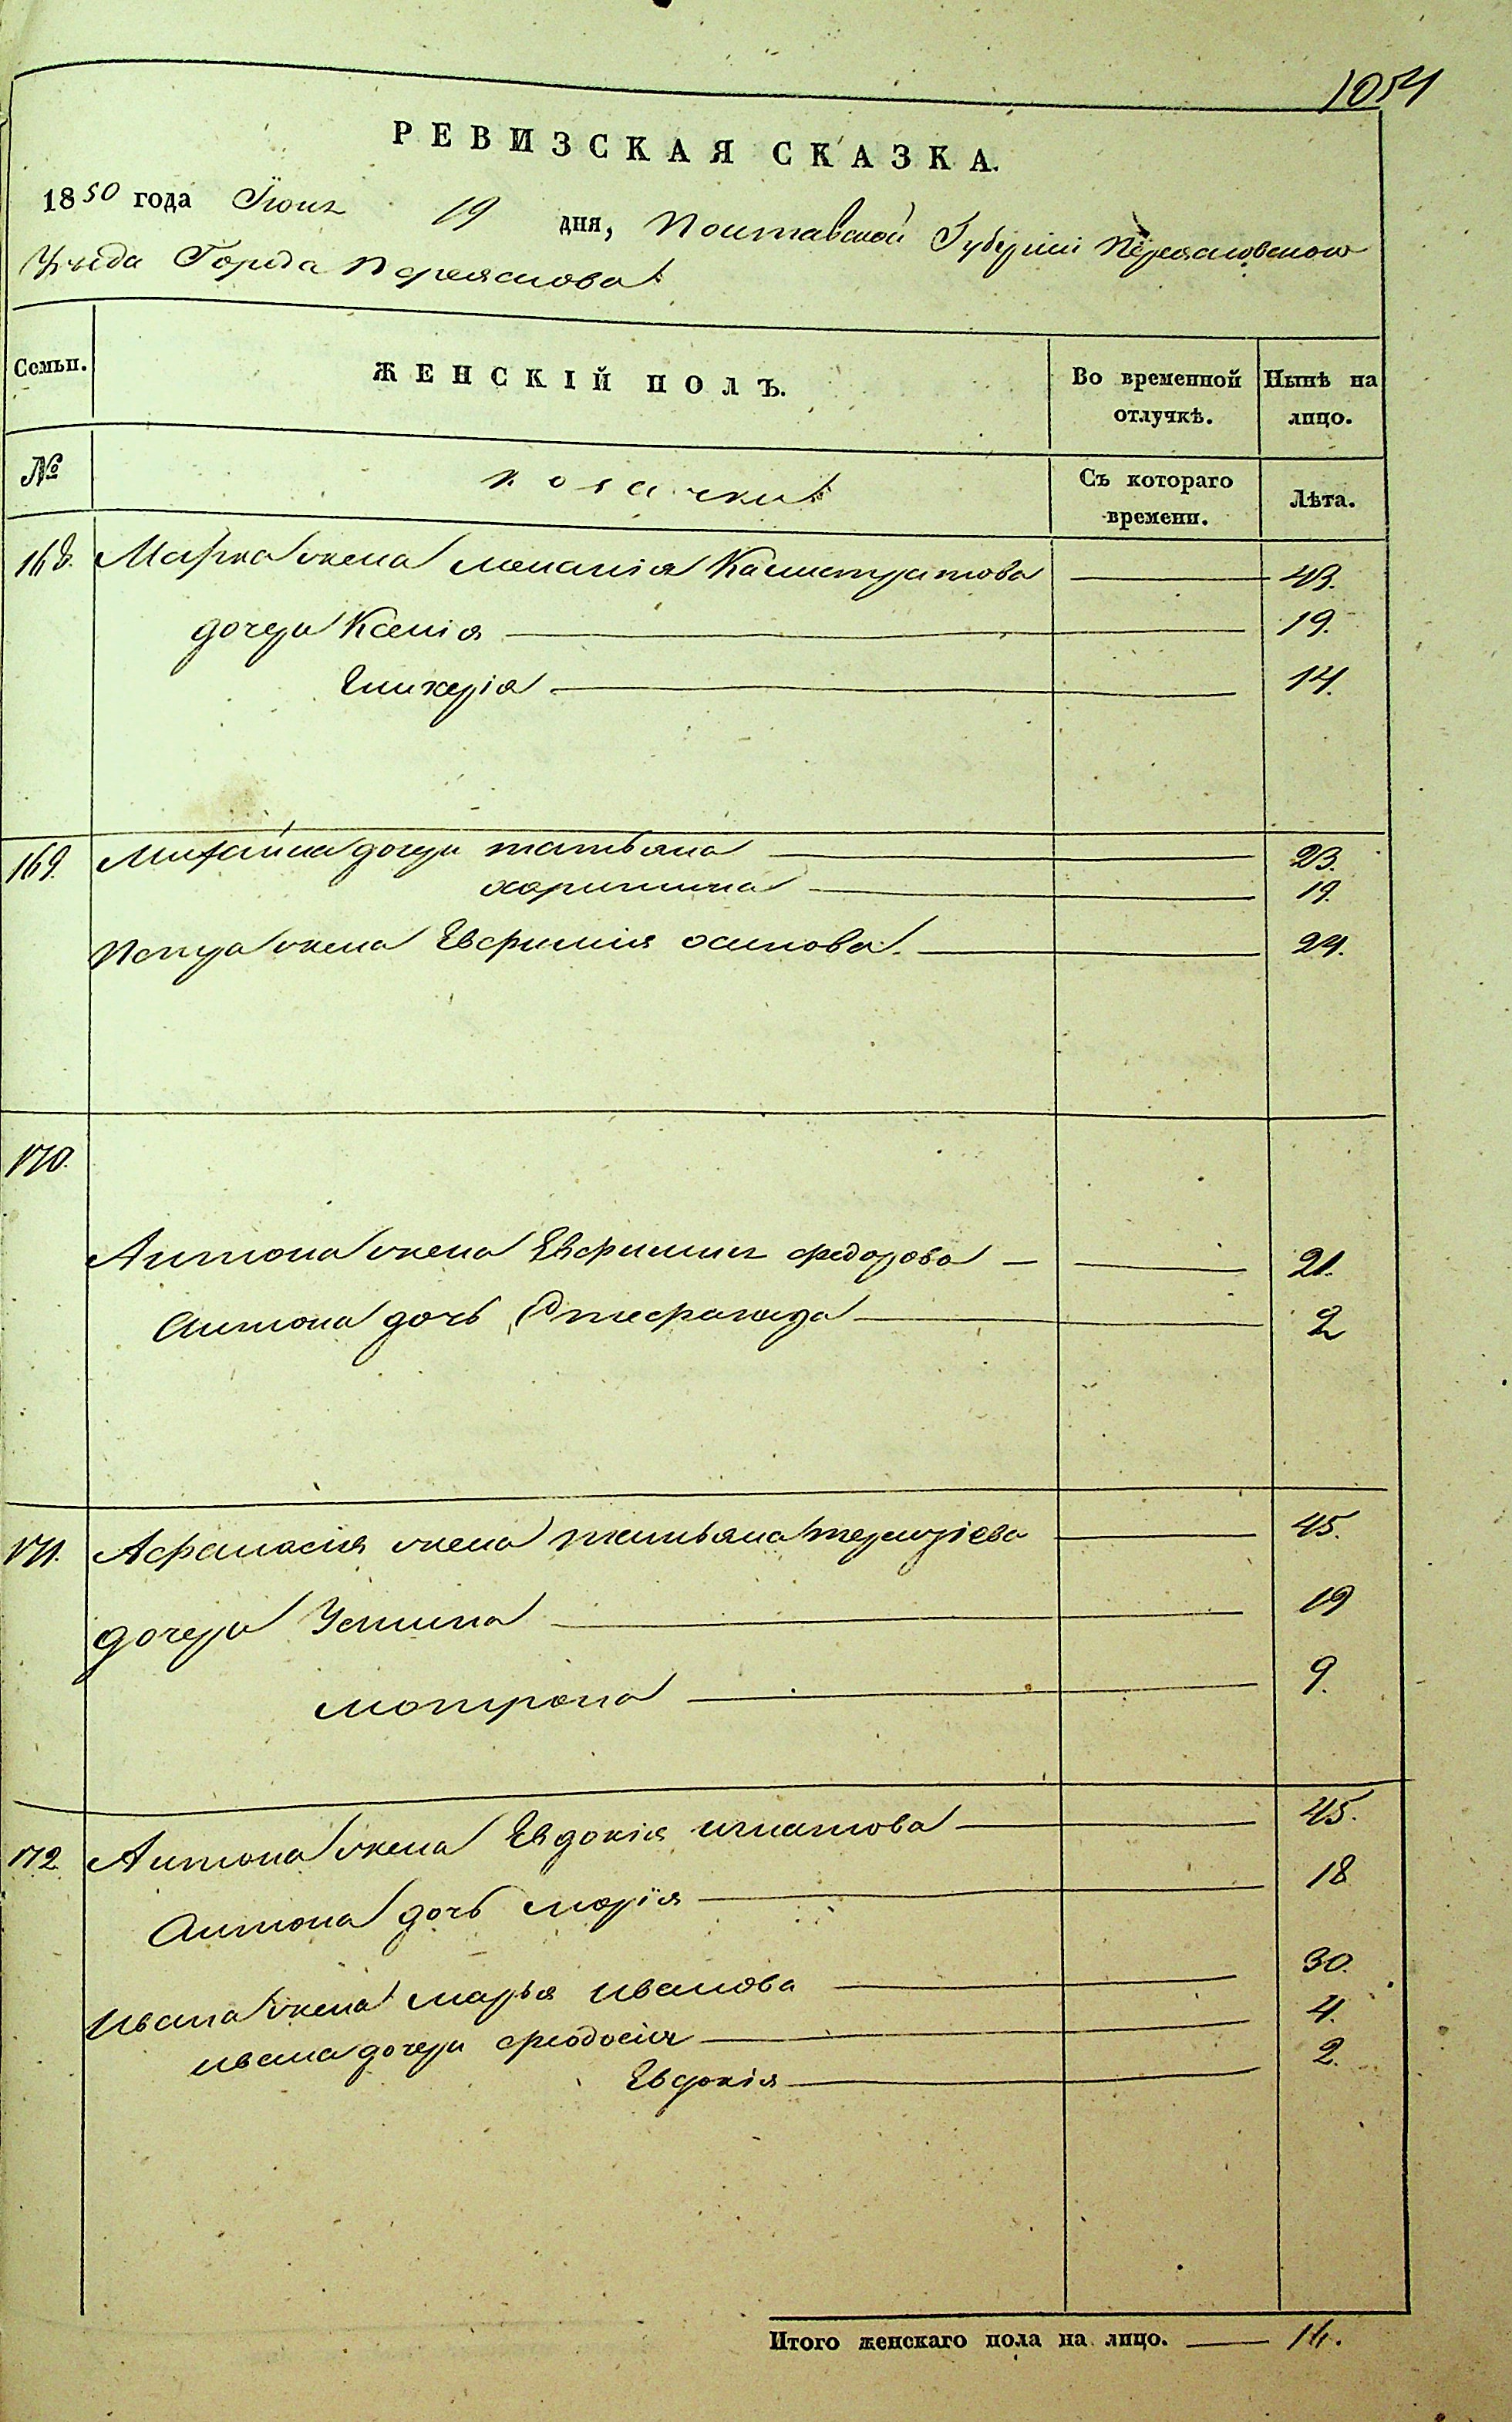 1054
РЕВИЗСКАЯ СКАЗКА.
1850 года Июня 19 дня, Полтавской Губерніи Переясловского
Уезда Города Переяслова
Семьи. ЖЕНСКІЙ ПОЛЪ. Во временной отлучкѣ. Нынѣ на лицо.
№ козачки Съ котораго времени. Лѣта.
168. Марка жена Меланія Калистратова 43.
дочери Ксенія 19.
Гликерія 14.
169. Михайла дочери татьяна 23.
харитина 19.
Петра жена Евфимія осипова 24.
170.
Антона жена Евфимия федорова 21.
Антона дочь 2
171. Афанасия жена татьяна терентіева 45.
дочери Устина 19
мотрона 9.
172. Антона жена Евдокія игнатова 45.
Антона дочь марія 18
Ивана жена марья иванова 30.
ивана дочери феодосия 4.
Евдокія 2.
Итого женскаго пола на лицо. 14.